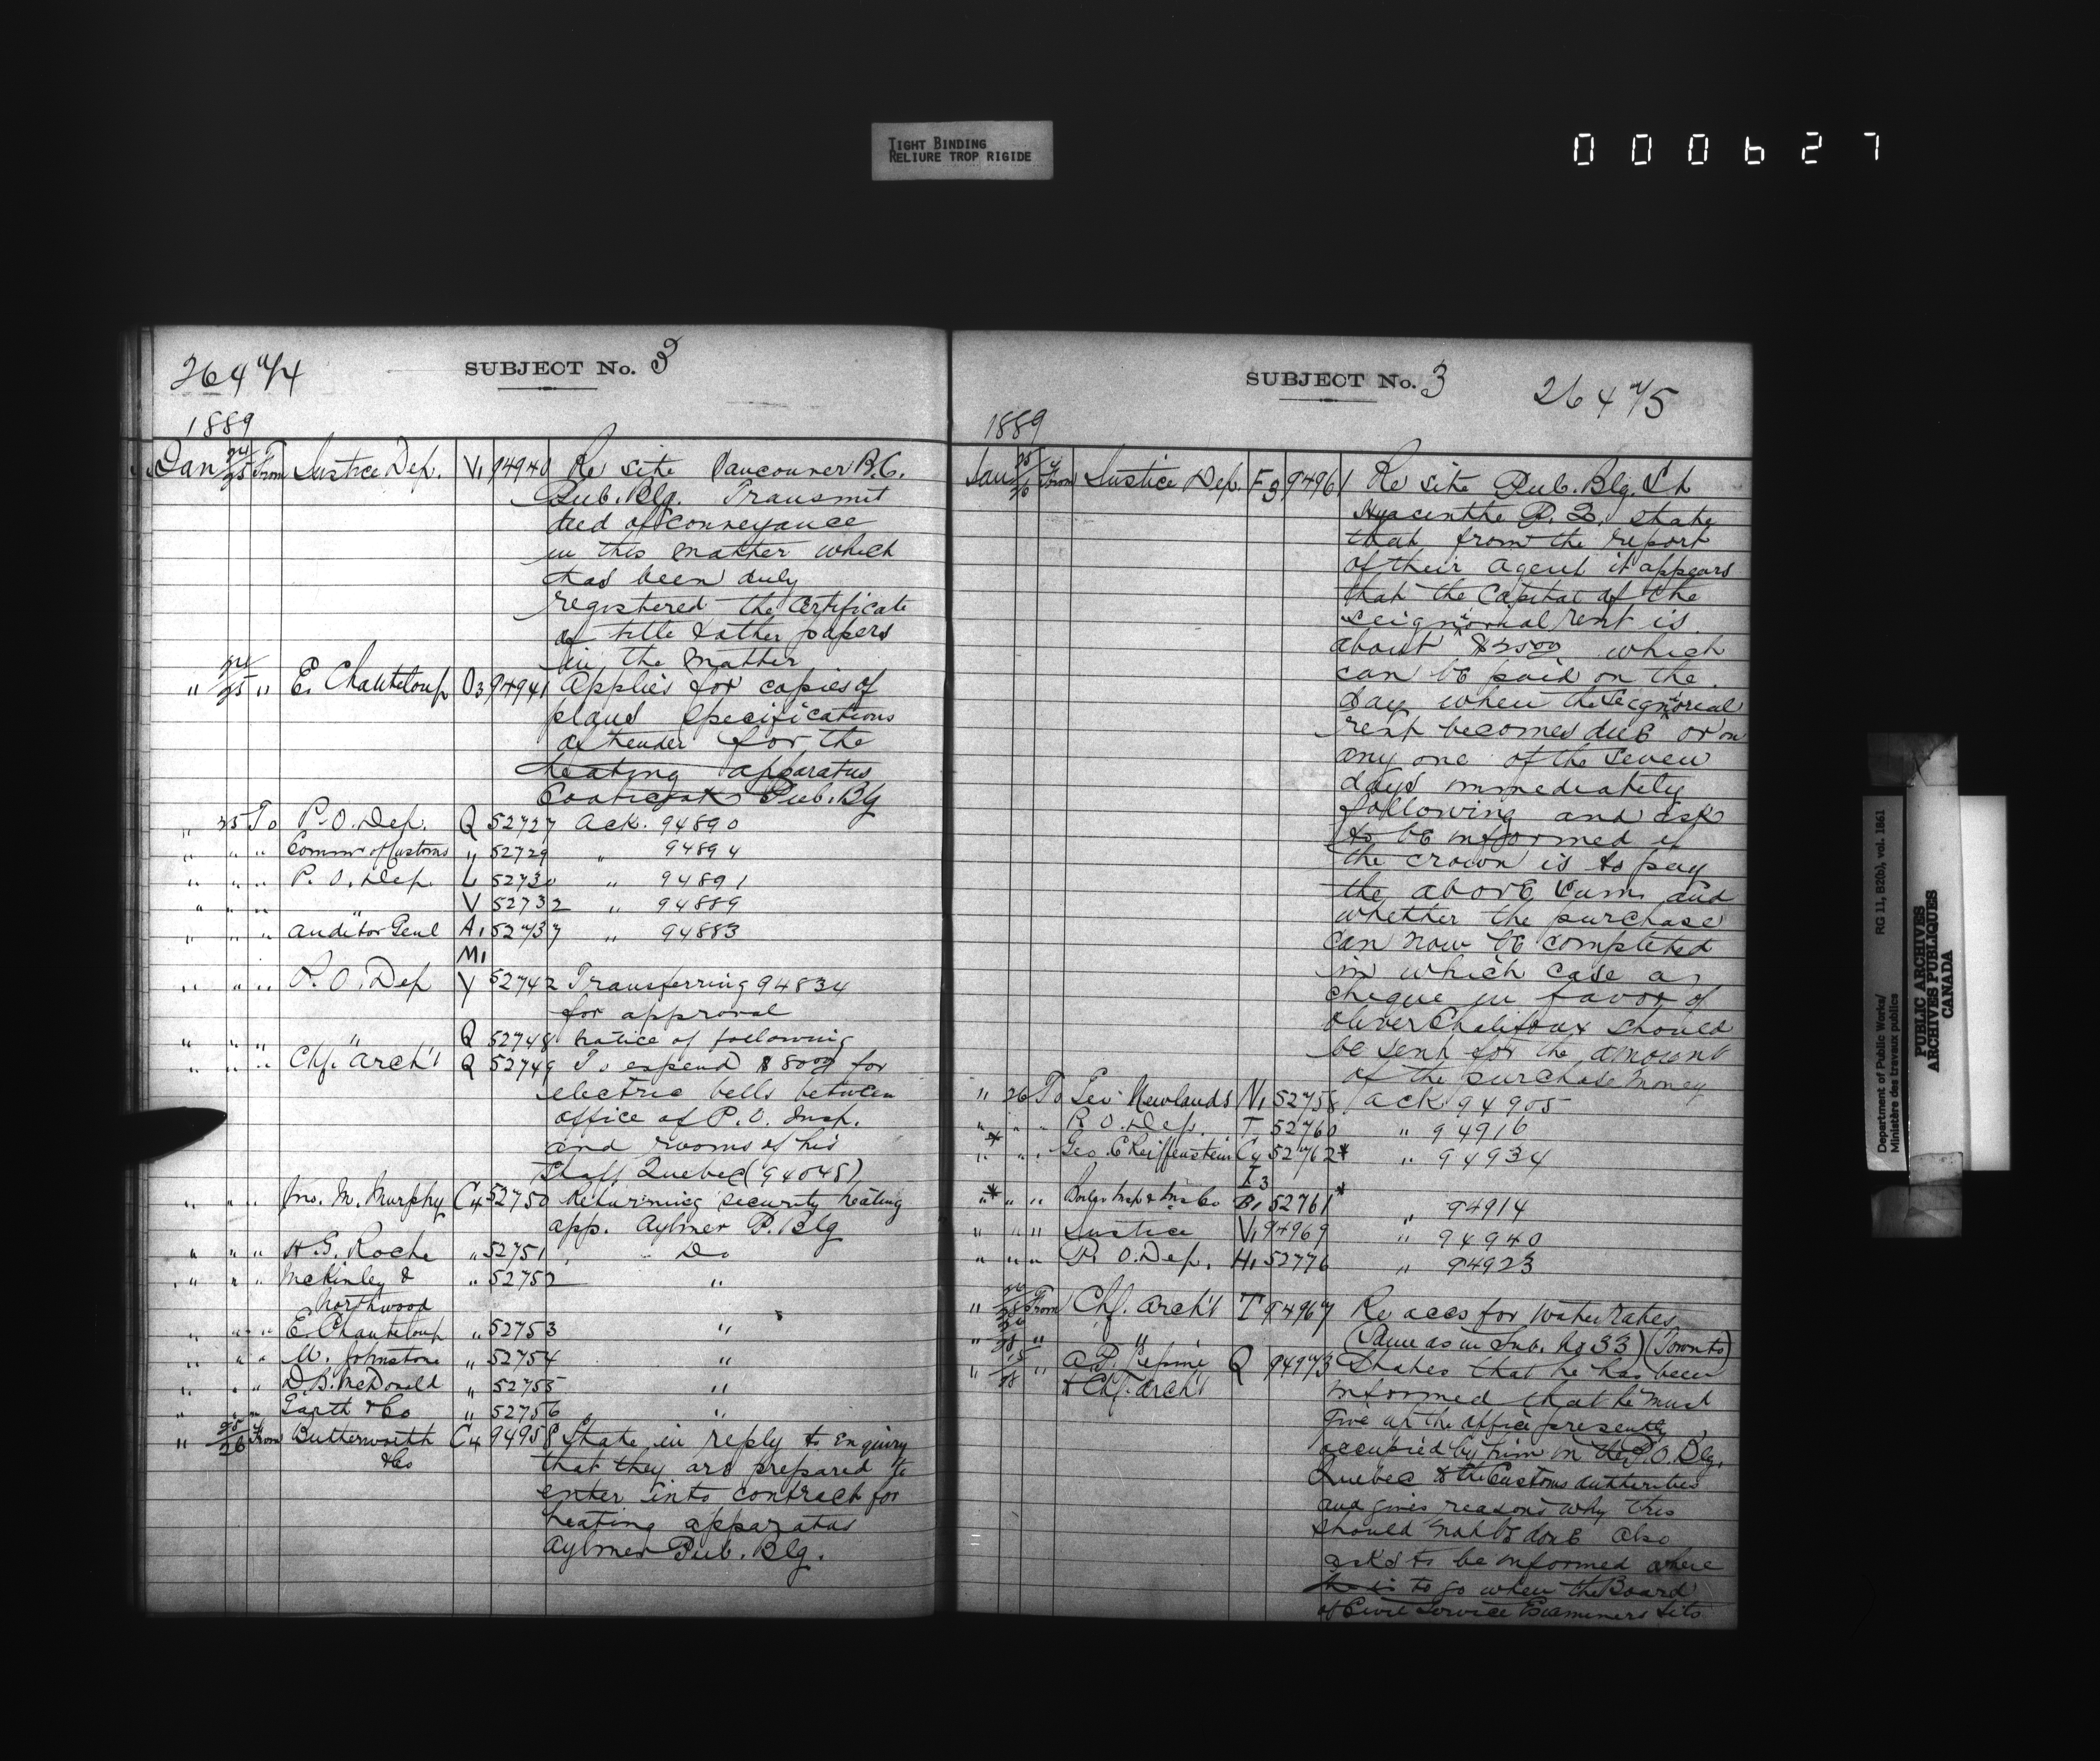 TIGHT BINDING
RELIURE TROP RIGIDE
000627
264 a/4
SUBJECT No. 3
1889
Jan 24/25 From Justice Dep. V1 94940 Re site Vancouver B.C.
Pub. Blg. Transmit
deed of conveyance
in this matter which
has been duly
registered the certificate
of title & other papers
in the matter
" 24/25 " E. Chanteloup O3 94941 Applies for copies of
plans specifications
of tender for the
heating apparatus
Coaticook Pub. Blg
" 25 To P.O. Dep. Q 52727 Ack. 94890
" " " Commr of Customs " 52729 " 94894
" " " P.O. Dep. L 52730 " 94891
" " " " V 52732 " 94889
" " " Auditor Genl A1 52737 " 94883
M1
" " " P.O. Dep Y 52742 Transferring 94834
for approval
" " " " Q 52748 Notice of following
" " " Chf. Arch't Q 52749 To expend $8000 for
electric bells between
office of P.O. Insp.
and rooms of his
Staff, Quebec (94048)
" " " Jno. M. Murphy C4 52750 Returning security heating
app. Aylmer P. Blg
" " " H.G. Roche " 52751 Do
" " " McKinley & " 52752 "
Northwood
" " " E. Chanteloup " 52753 "
" " " M. Johnstone " 52754 "
" " " D.B. McDonald " 52755 "
" " " Garth & Co " 52756 "
" 25/26 From Butterworth C4 94958 State in reply to enquiry
& Co that they are prepared to
enter into contract for
heating apparatus
Aylmer Pub. Blg.
SUBJECT No. 3
264 a/5
1889
Jan 25/26 From Justice Dep. F3 94961 Re site Pub. Blg. St
Hyacinthe P.Q. state
that from the report
of their agent it appears
that the Capital of the
seignorial rent is
about $2500 which
can be paid on the
day when the Seignorial
rent becomes due or on
any one of the seven
days immediately
following and ask
to be informed if
the crown is to pay
the above sum and
whether the purchase
can now be completed
in which case a
cheque in favor of
Oliver Chalifoux should
be sent for the amount
of the purchase money
" 26 To Geo. Newlands N1 52758 Ack 94905
" " " P.O. Dep. T 52760 " 94916
" " " Geo. C Reiffenstein C4 52762* " 94934
I3
"* " " Boiler Insp & Ins Co B1 52761* " 94914
" " " Justice V1 94969 " 94940
" " " P.O. Dep. H1 52776 " 94923
" From Chf. Arch't T 94967 Re accs for water rates
" " " (Same as in Sub. No 33) (Toronto)
" " A.D. Lepine Q 94973 States that he has been
& Chf. Arch't informed that he must
give up the office presently
occupied by him in the P.O. Blg.
Quebec to the Customs authorities
and gives reasons why this
should not be done Also
asks to be informed where
he is to go when the Board
of Civil Service Examiners sits
Department of Public Works/ RG 11, B2(b), vol. 1861
Ministère des travaux publics
PUBLIC ARCHIVES
ARCHIVES PUBLIQUES
CANADA